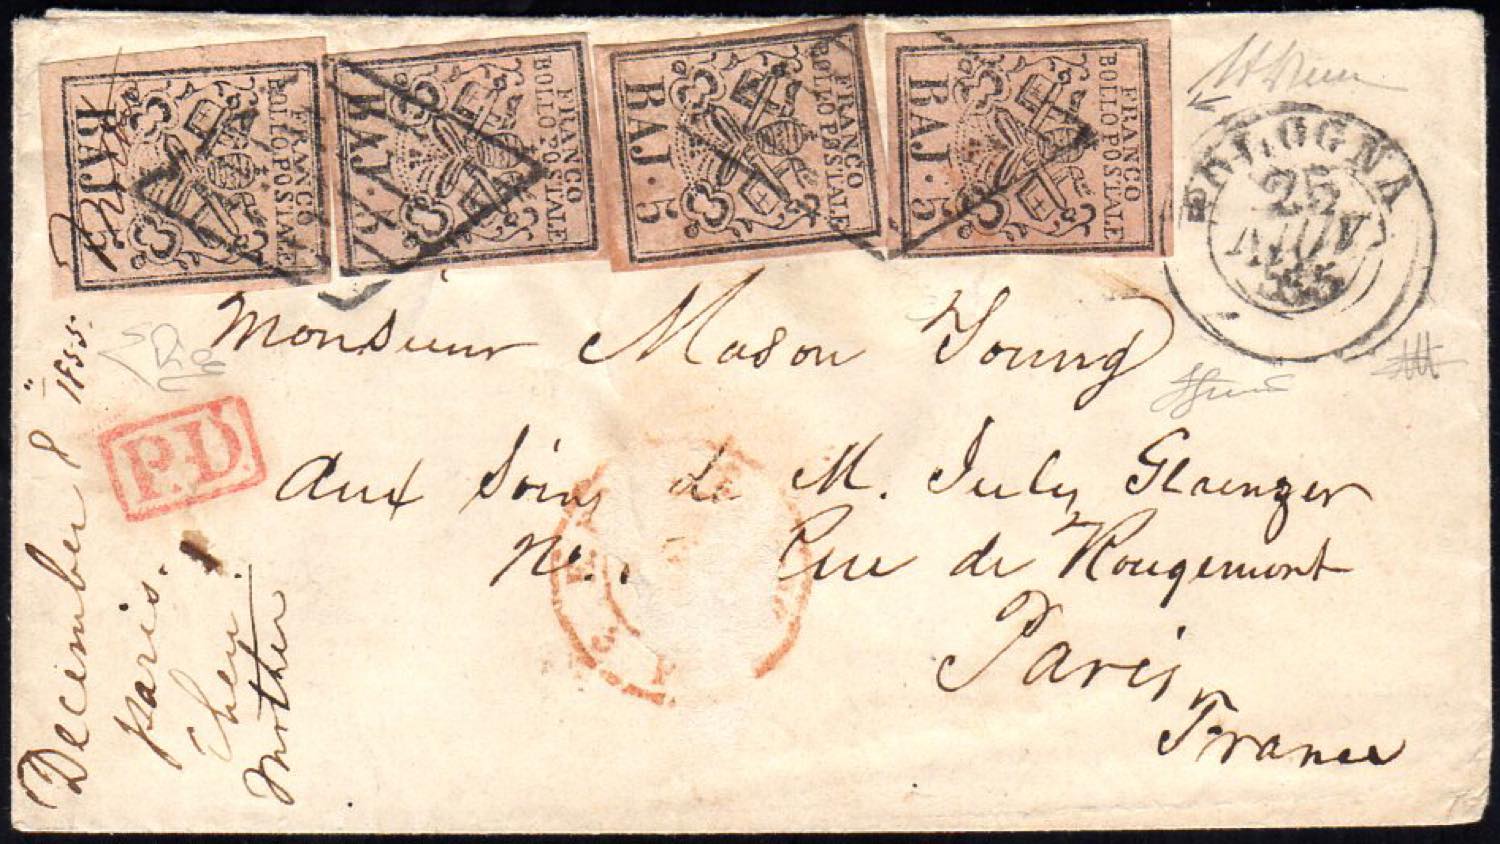 FRANCO
BOLLO POSTALE
BAJ·5
FRANCO
BOLLO POSTALE
BAJ·5
FRANCO
BOLLO POSTALE
BAJ·5
FRANCO
BOLLO POSTALE
BAJ·5
BOLOGNA
25
NOV
55
Monsieur Mason Young
P.D.
Aux Soins de M. July Glaenzer
No. Rue de Rougemont
Paris
France
December 8" 1855.
Paris.
Mother